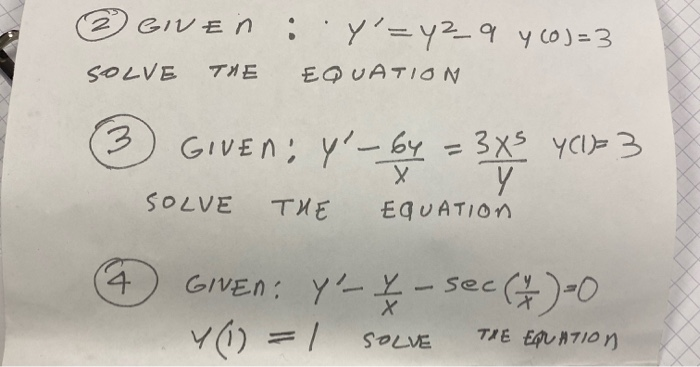 ② GIVEN : y' = y² - 9 y(0) = 3
SOLVE THE EQUATION
③ GIVEN: y' - 6y/x = 3x⁵/y y(1) = 3
SOLVE THE EQUATION
④ GIVEN: y' - y/x - sec(y/x) = 0
y(1) = 1 SOLVE THE EQUATION